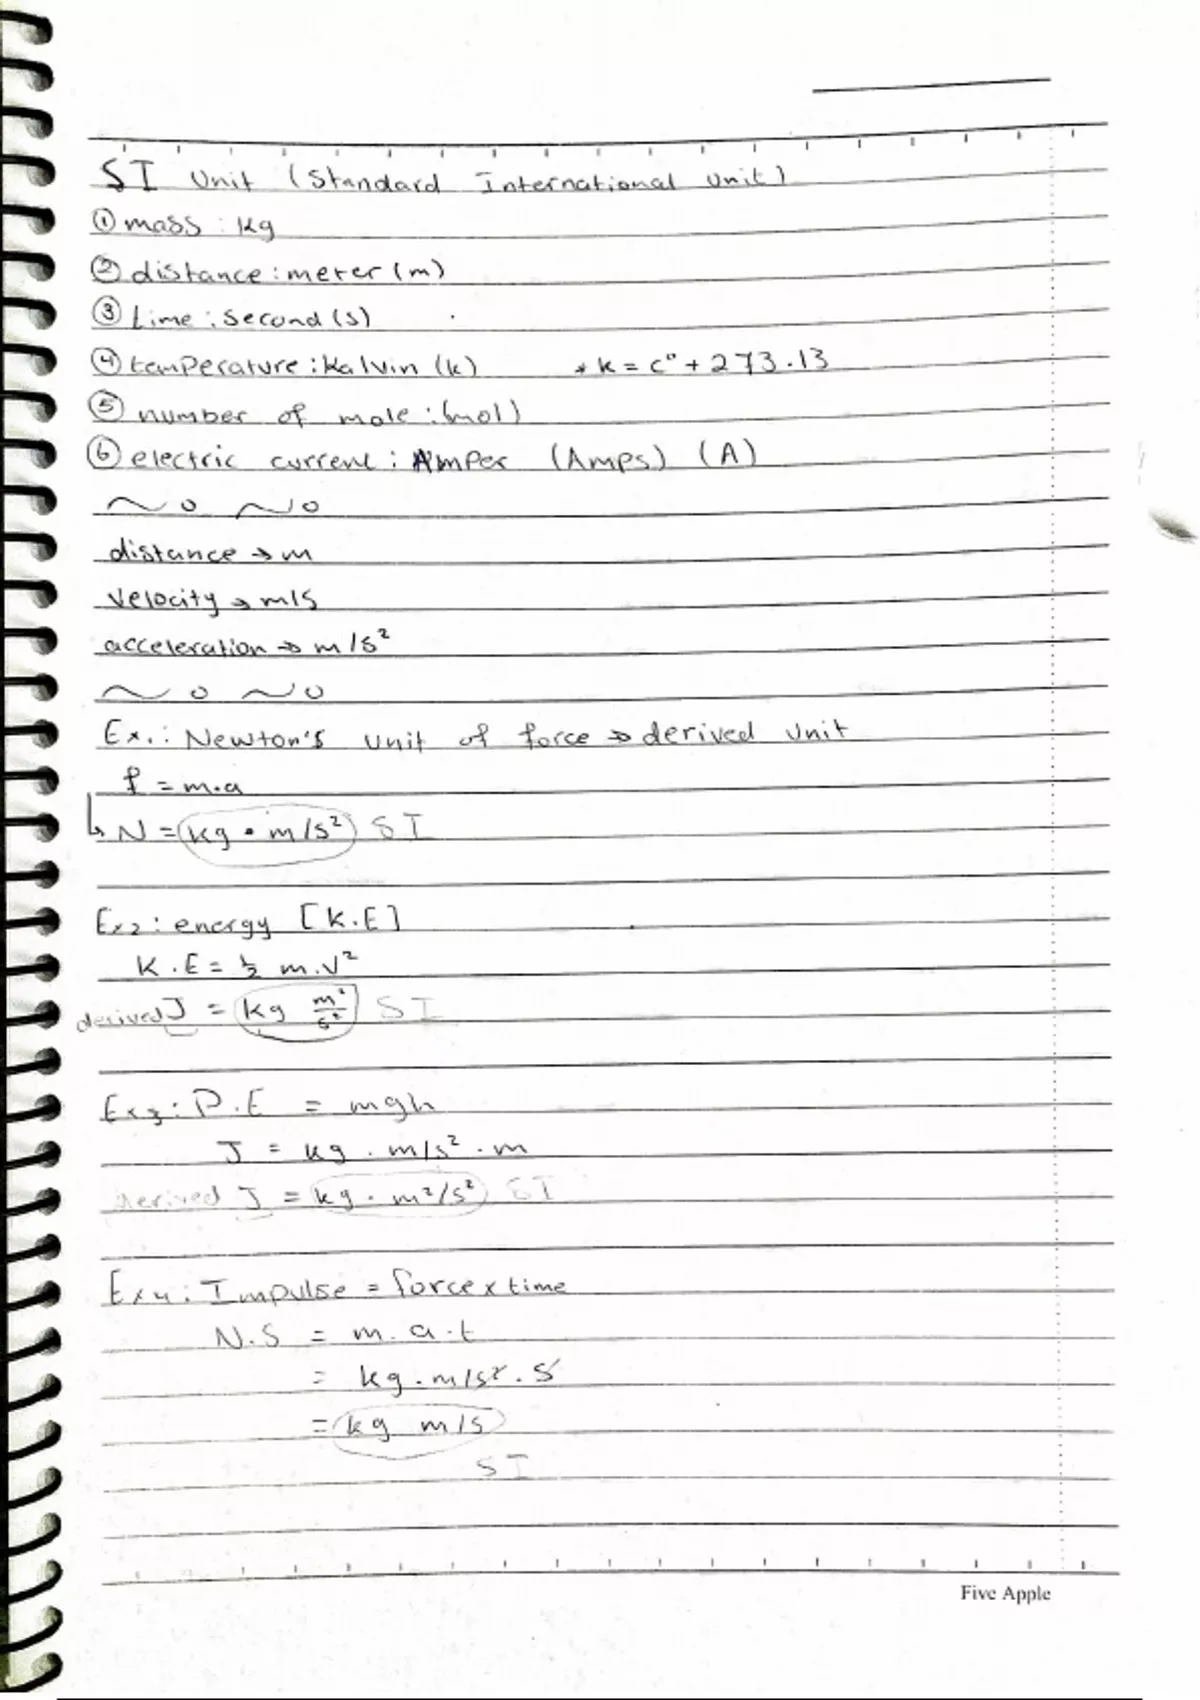 SI Unit (Standard International Unit)
① mass : kg
② distance : meter (m)
③ time : second (s)
④ temperature : Kalvin (k) * k = c° + 273.13
⑤ number of mole : (mol)
⑥ electric current : Amper (Amps) (A)
distance → m
velocity → m/s
acceleration → m/s²
Ex1 : Newton's unit of force → derived unit
f = m.a
↳ N = kg • m/s² SI
Ex2 : energy [K.E]
K.E = ½ m.v²
derived J = kg m²/s² SI
Ex3 : P.E = mgh
J = kg . m/s² . m
derived J = kg . m²/s² SI
Ex4 : Impulse = force x time
N.S = m. a .t
= kg . m/s² . s
= kg m/s
SI
Five Apple